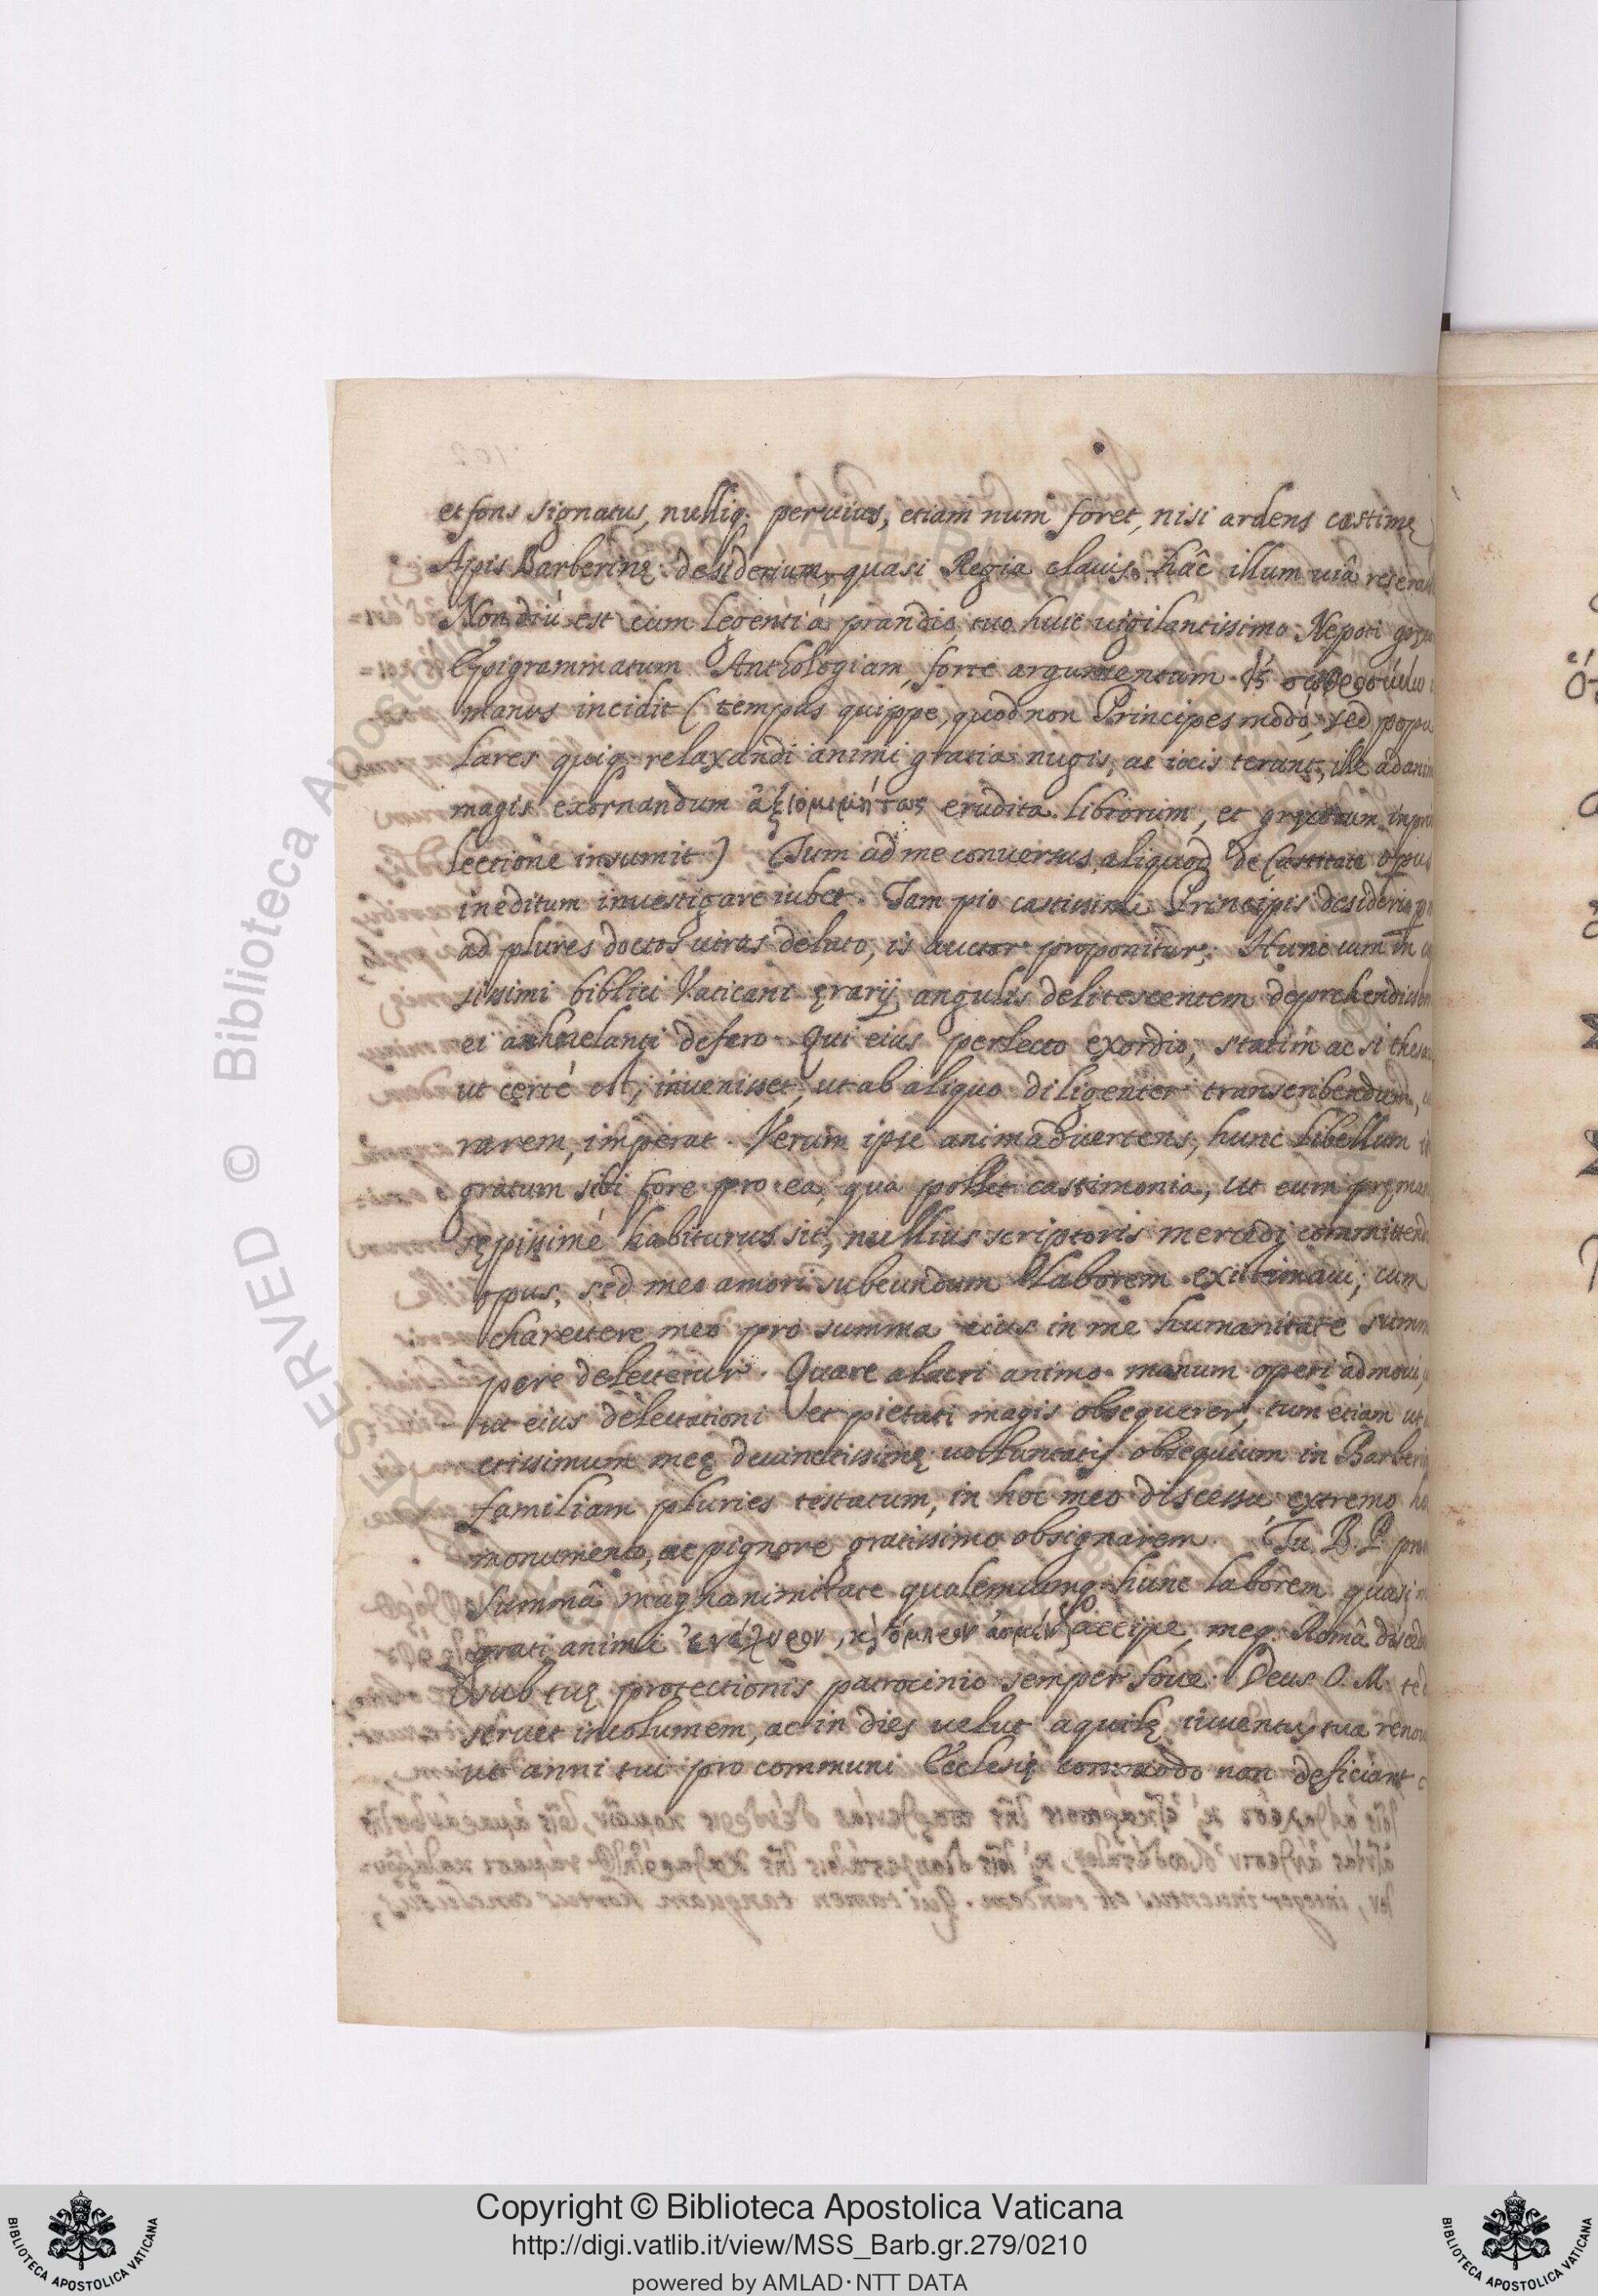 et fons signatus, nulliq. peruius, etiam num foret, nisi ardens castimę
Apis Barberinę desiderium, quasi Regia clauis hâc illum uiâ reserau
Non diú est cum legenti á prandio tuo huic uigilantissimo Nepoti gręca
Epigrammatum Anthologiam, forte argumentum
manus incidit (tempus quippe, quod non Principes modó, sed popu
lares quiq. relaxandi animi gratia nugis, ac iocis terunt, ille ad anim
magis exornandum ἀξιομιμήτως erudita librorum, et gręcorum inpri
lectione insumit) Tum ad me conuersus aliquod de Castitate opus
ineditum inuestigare iubet. Tam pio castissimi Principis desiderio
ad plures doctos uiros delato, is auctor proponitur. Hunc cum in
sissimi biblici Vaticani ęrarij angulis delitescentem deprehendissem
ei anhelanti defero. Qui eius perlecto exordio, statim ac si thesau
ut certé est, inuenisset, ut ab aliquo diligenter transcribendum,
rarem, imperat. Verum ipse animaduertens, hunc libellum
gratum sibi fore pro ea, qua pollet castimonia, ut eum prę man
sępissimé habiturus sit, nullius scriptoris mercedi committend
opus, sed meo amori subeundum laborem existimaui, cum
charectere meo pro summa eius in me humanitate summ
pere delectetur. Quare alacri animo manum operi admoui,
ut eius delectationi et pietati magis obsequerer, tum etiam ut
ctissimum meę deuinctissimę uoluntatis obsequium in Barberin
familiam pluries testatum, in hoc meo discessu extremo ho
monumento, ac pignore gratissimo obsignarem. Tu B. P. pro
summâ magnanimitate qualemcumq. hunc laborem quasi
grati animi accipe, meq. Româ disced
sub tuę protectionis patrocinio semper foue. Deus O. M. te
seruet incolumem, ac in dies uelut aquilę iuuentus tua renou
ut anni tui pro communi Ecclesię commodo non deficiant
Copyright © Biblioteca Apostolica Vaticana
http://digi.vatlib.it/view/MSS_Barb.gr.279/0210
powered by AMLAD·NTT DATA
BIBLIOTECA APOSTOLICA VATICANA
BIBLIOTECA APOSTOLICA VATICANA